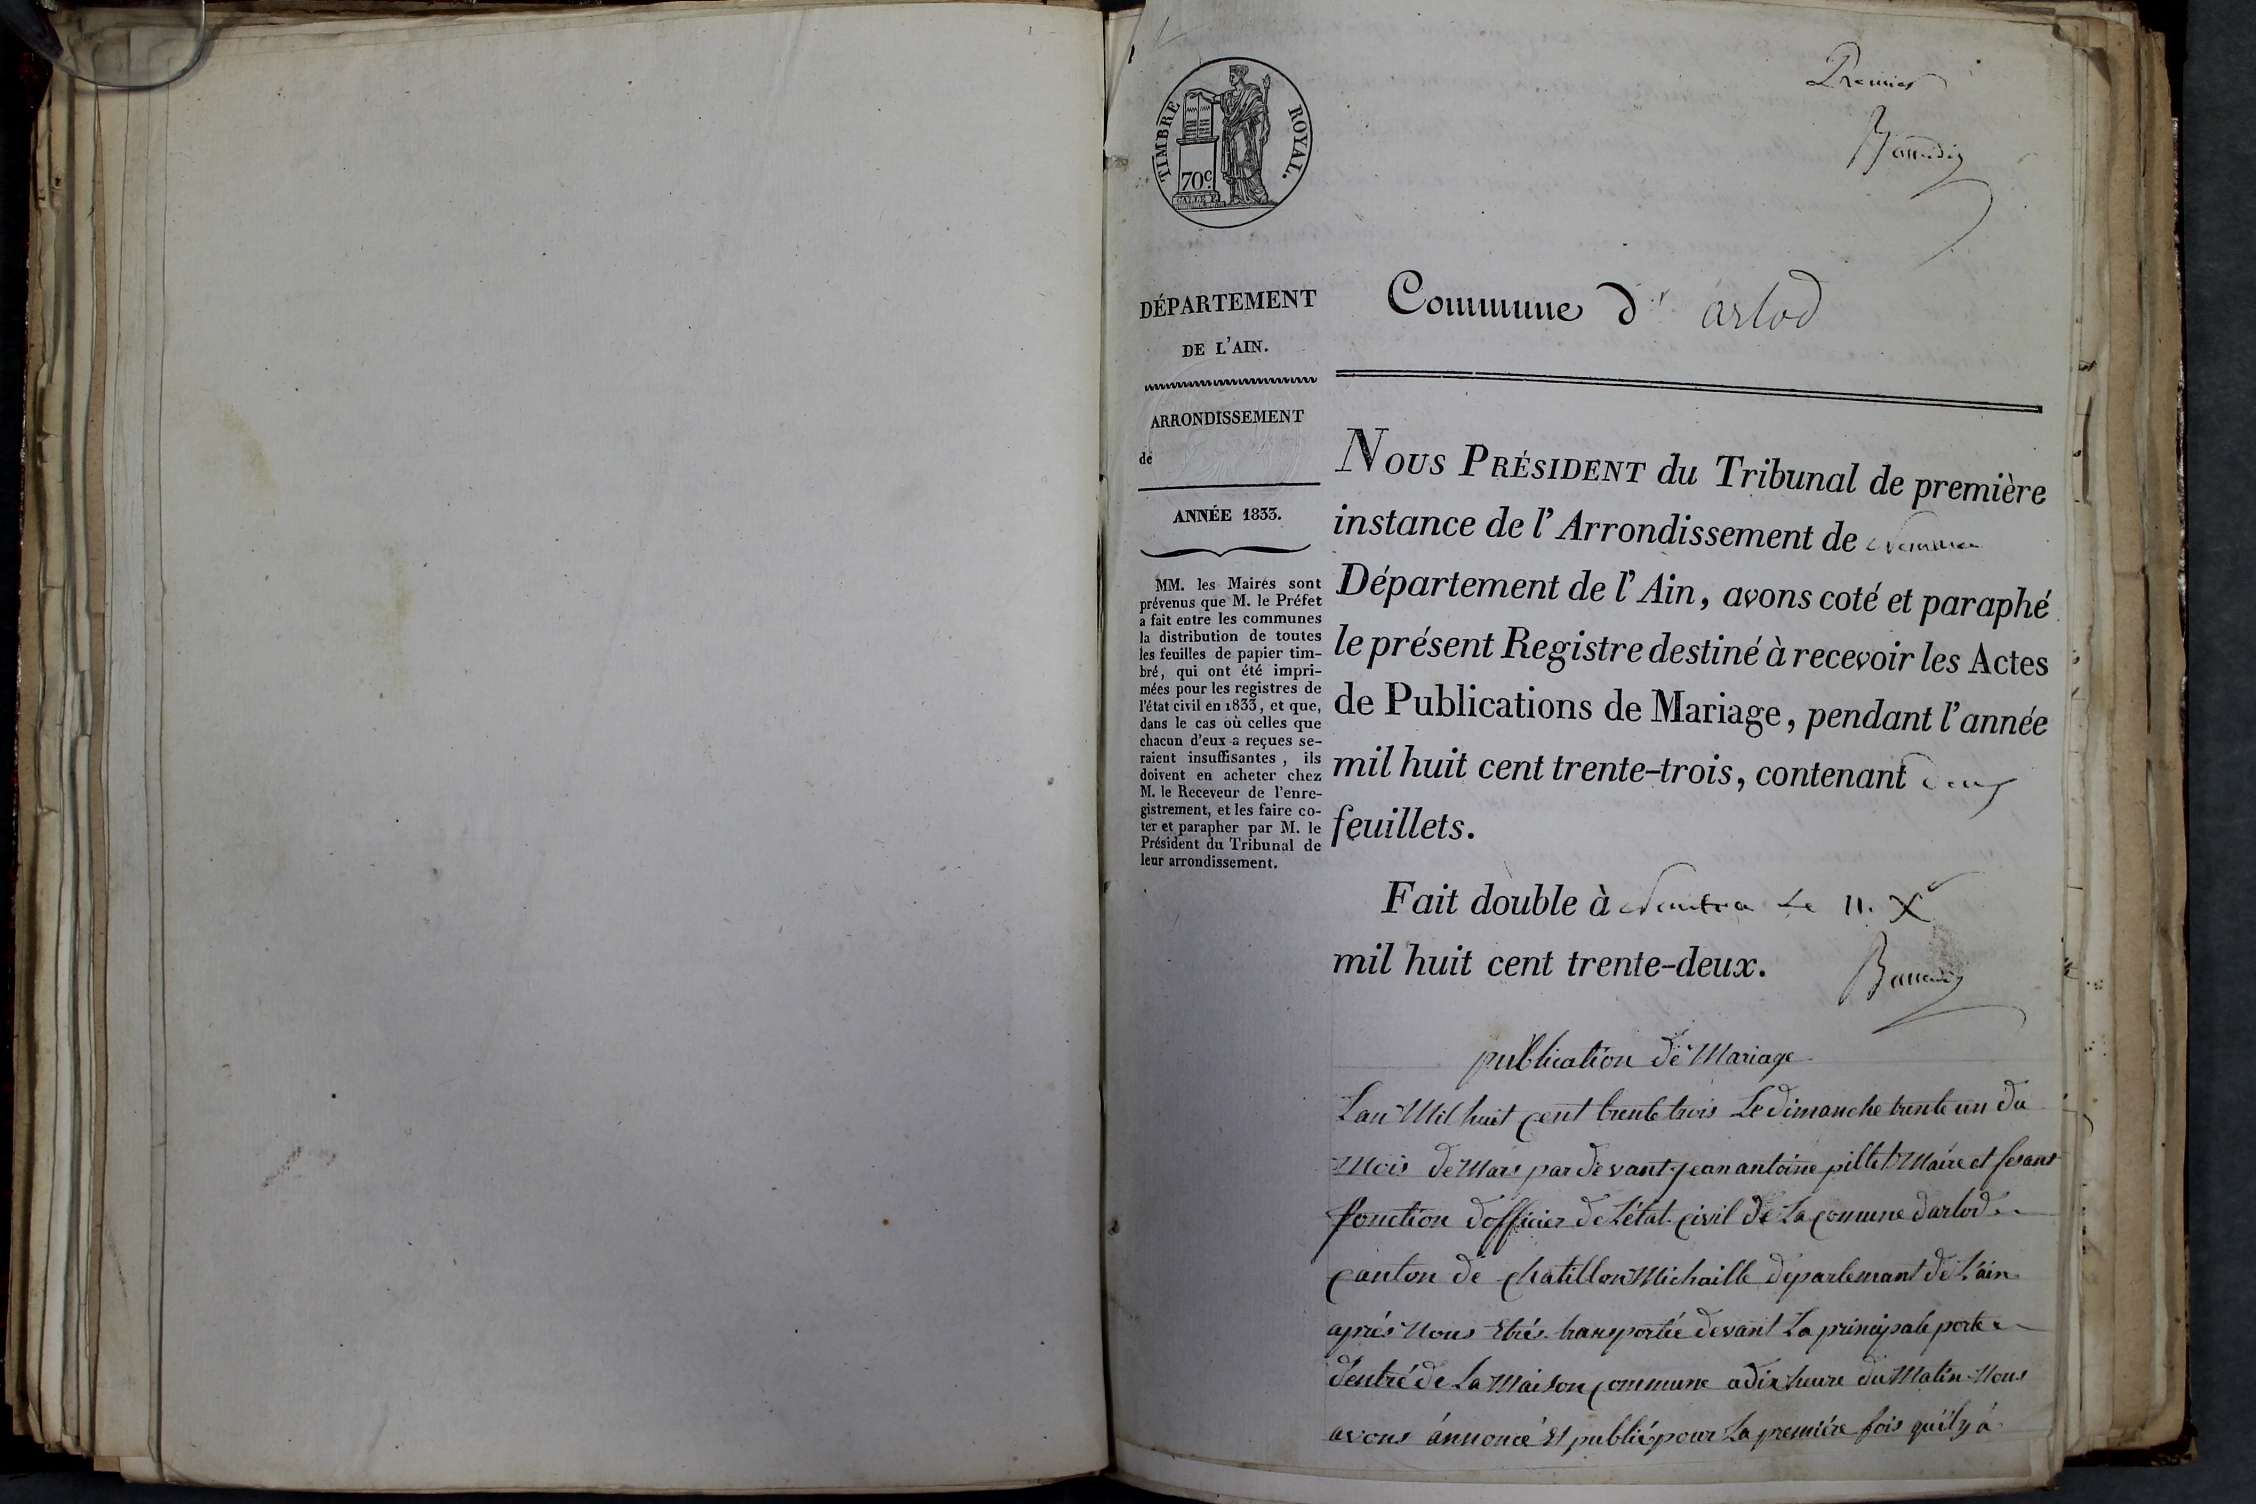 Premier
TIMBRE ROYAL.
70c.
DÉPARTEMENT
DE L'AIN.
ARRONDISSEMENT
de
ANNÉE 1833.
MM. les Maires sont
prévenus que M. le Préfet
a fait entre les communes
la distribution de toutes
les feuilles de papier tim-
bré, qui ont été impri-
mées pour les registres de
l'état civil en 1833, et que,
dans le cas où celles que
chacun d'eux a reçues se-
raient insuffisantes, ils
doivent en acheter chez
M. le Receveur de l'enre-
gistrement, et les faire co-
ter et parapher par M. le
Président du Tribunal de
leur arrondissement.
Commune d' arlod
NOUS PRÉSIDENT du Tribunal de première
instance de l'Arrondissement de
Département de l'Ain, avons coté et paraphé
le présent Registre destiné à recevoir les Actes
de Publications de Mariage, pendant l'année
mil huit cent trente-trois, contenant deux
feuillets.
Fait double à nantua le 11. Xe
mil huit cent trente-deux.
publication de Mariage
Lan Mil huit cent trente trois Le dimanche trente un du
Mois de Mars par devant jean antoine pillet Maire et fesant
fonction dofficier de Létat civil de La comune darlod
canton de chatillon Michaille departemant de L'ain
aprés Nous Etrés transportée devant La principale porte
d'entré de La Maison commune a dix heure du Matin Nous
avons ánnoncé Et publié pour La premiére fois quil y á